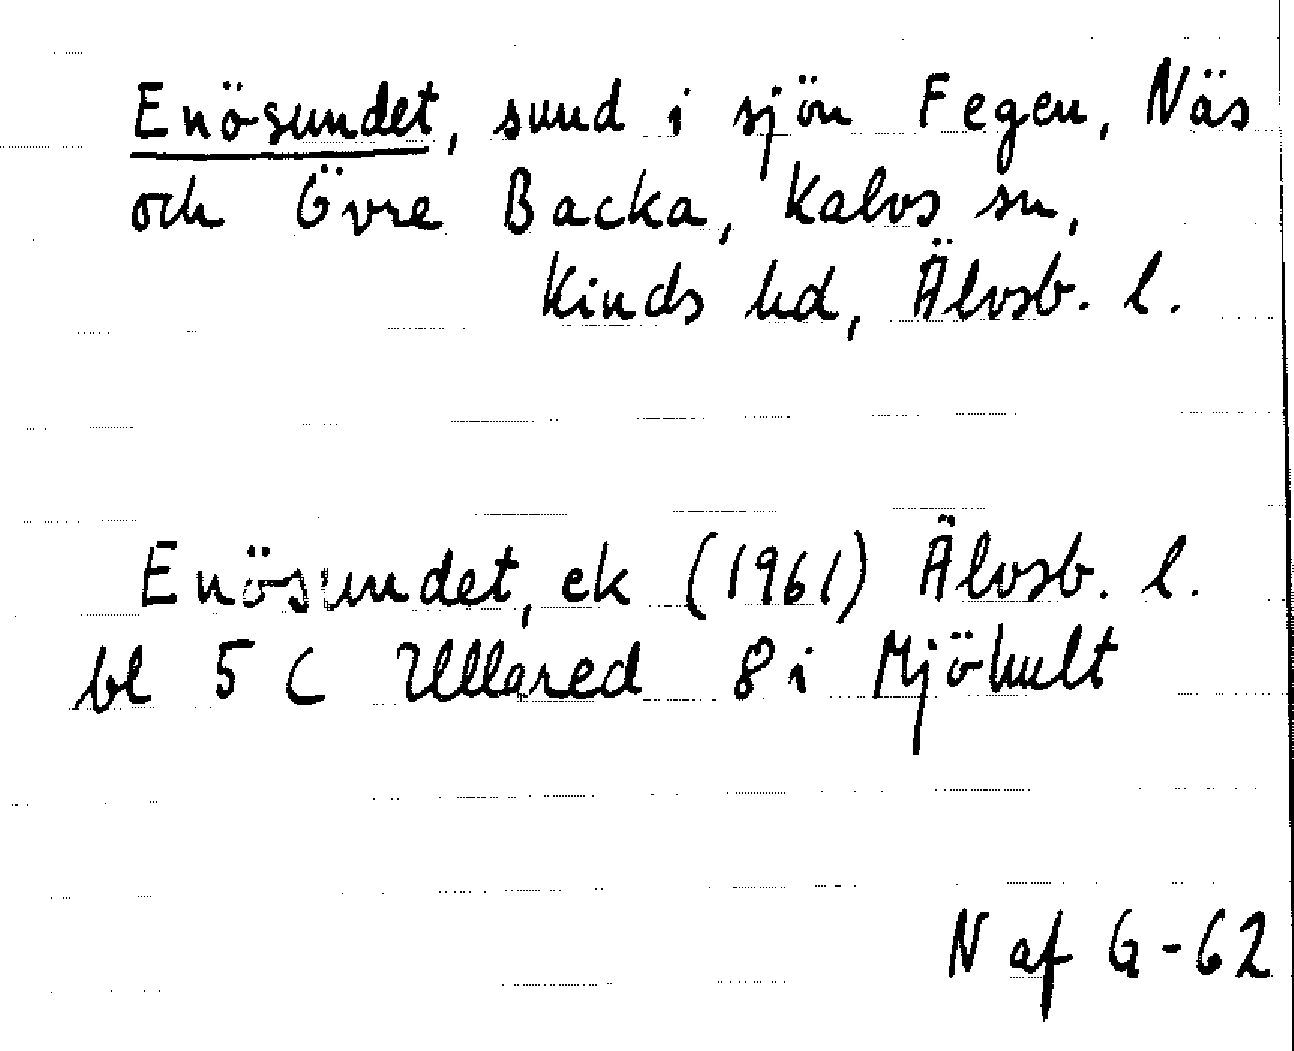 Enösundet, sund i sjön Fegen, Näs
och Övre Backa, Kalvs sn,
Kinds hd, Älvsb. l.
Enösundet, ek (1961) Älvsb. l.
bl 5 C Ullared 8 i Mjöhult
N af G-62